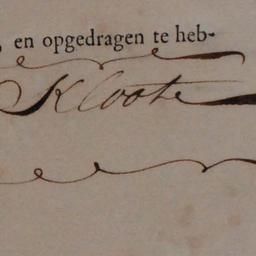 , en opgedragen te heb-
Kloote